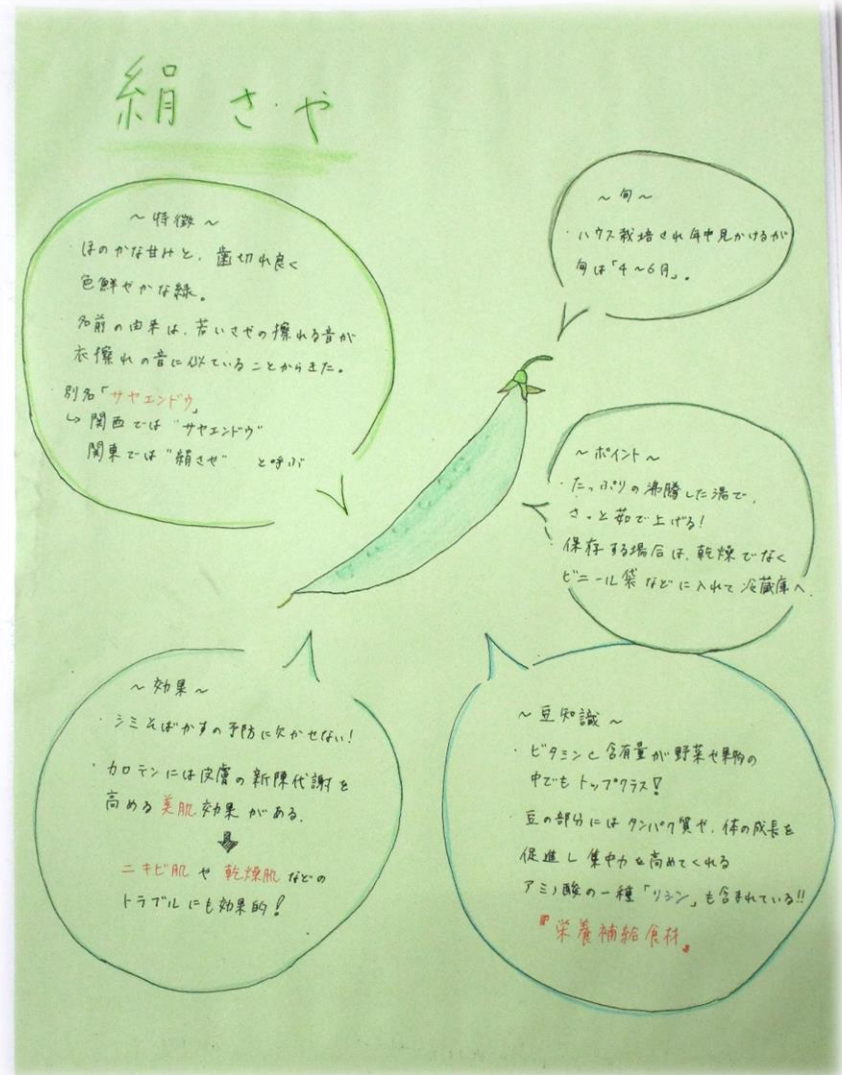 絹さや
～特徴～
・ほのかな甘みと、歯切れ良く
色鮮やかな緑。
名前の由来は、若いさやの擦れる音が
衣擦れの音に似ていることからきた。
別名「サヤエンドウ」
↳ 関西では "サヤエンドウ"
関東では "絹さや" と呼ぶ
～旬～
・ハウス栽培され年中見かけるが
旬は「4～6月」。
～ポイント～
・たっぷりの沸騰した湯で、
さっと茹で上げる!
・保存する場合は、乾燥でなく
ビニール袋などに入れて冷蔵庫へ.
～効果～
・シミそばかすの予防に欠かせない!
・カロテンには皮膚の新陳代謝を
高める美肌効果がある.
ニキビ肌や乾燥肌などの
トラブルにも効果的!
～豆知識～
・ビタミンC含有量が野菜や果物の
中でもトップクラス!
・豆の部分にはタンパク質や、体の成長を
促進し集中力を高めてくれる
アミノ酸の一種「リシン」も含まれている!!
『栄養補給食材』